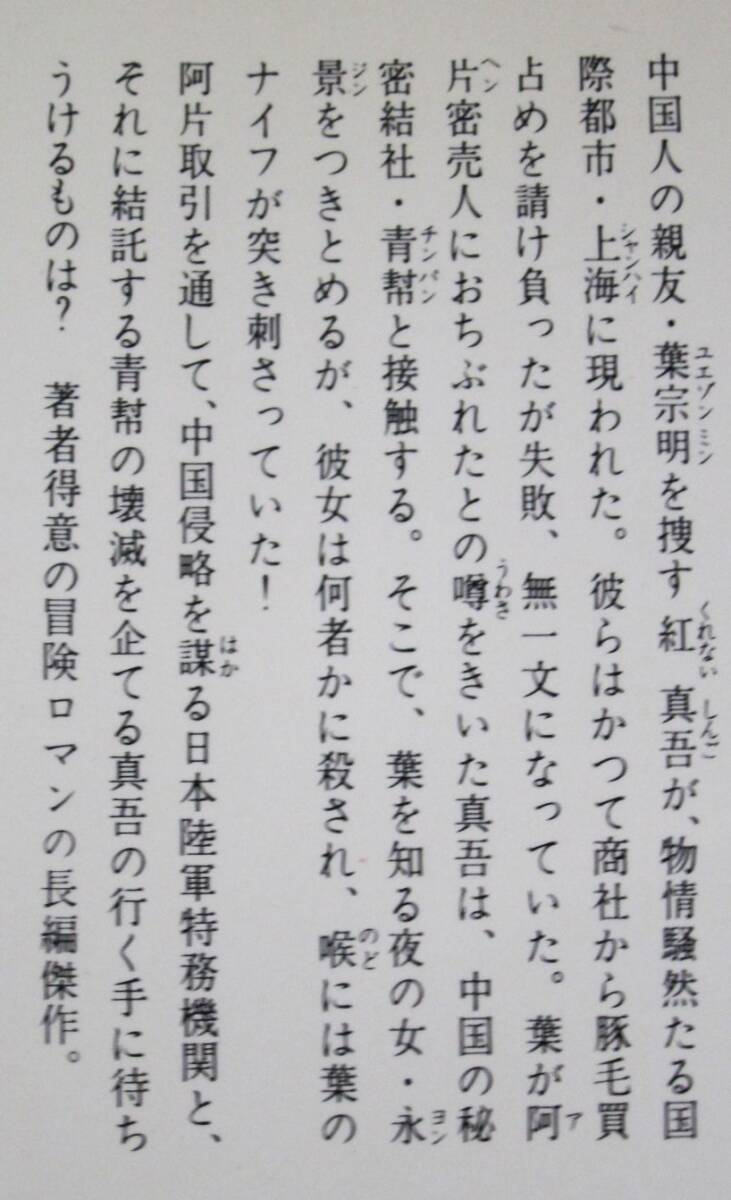 中国人の親友・葉宗明を捜す紅　真吾が、物情騒然たる国
際都市・上海に現われた。彼らはかつて商社から豚毛買
占めを請け負ったが失敗、無一文になっていた。葉が阿
片密売人におちぶれたとの噂をきいた真吾は、中国の秘
密結社・青幇と接触する。そこで、葉を知る夜の女・永
景をつきとめるが、彼女は何者かに殺され、喉には葉の
ナイフが突き刺さっていた！
阿片取引を通して、中国侵略を謀る日本陸軍特務機関と、
それに結託する青幇の壊滅を企てる真吾の行く手に待ち
うけるものは？　著者得意の冒険ロマンの長編傑作。